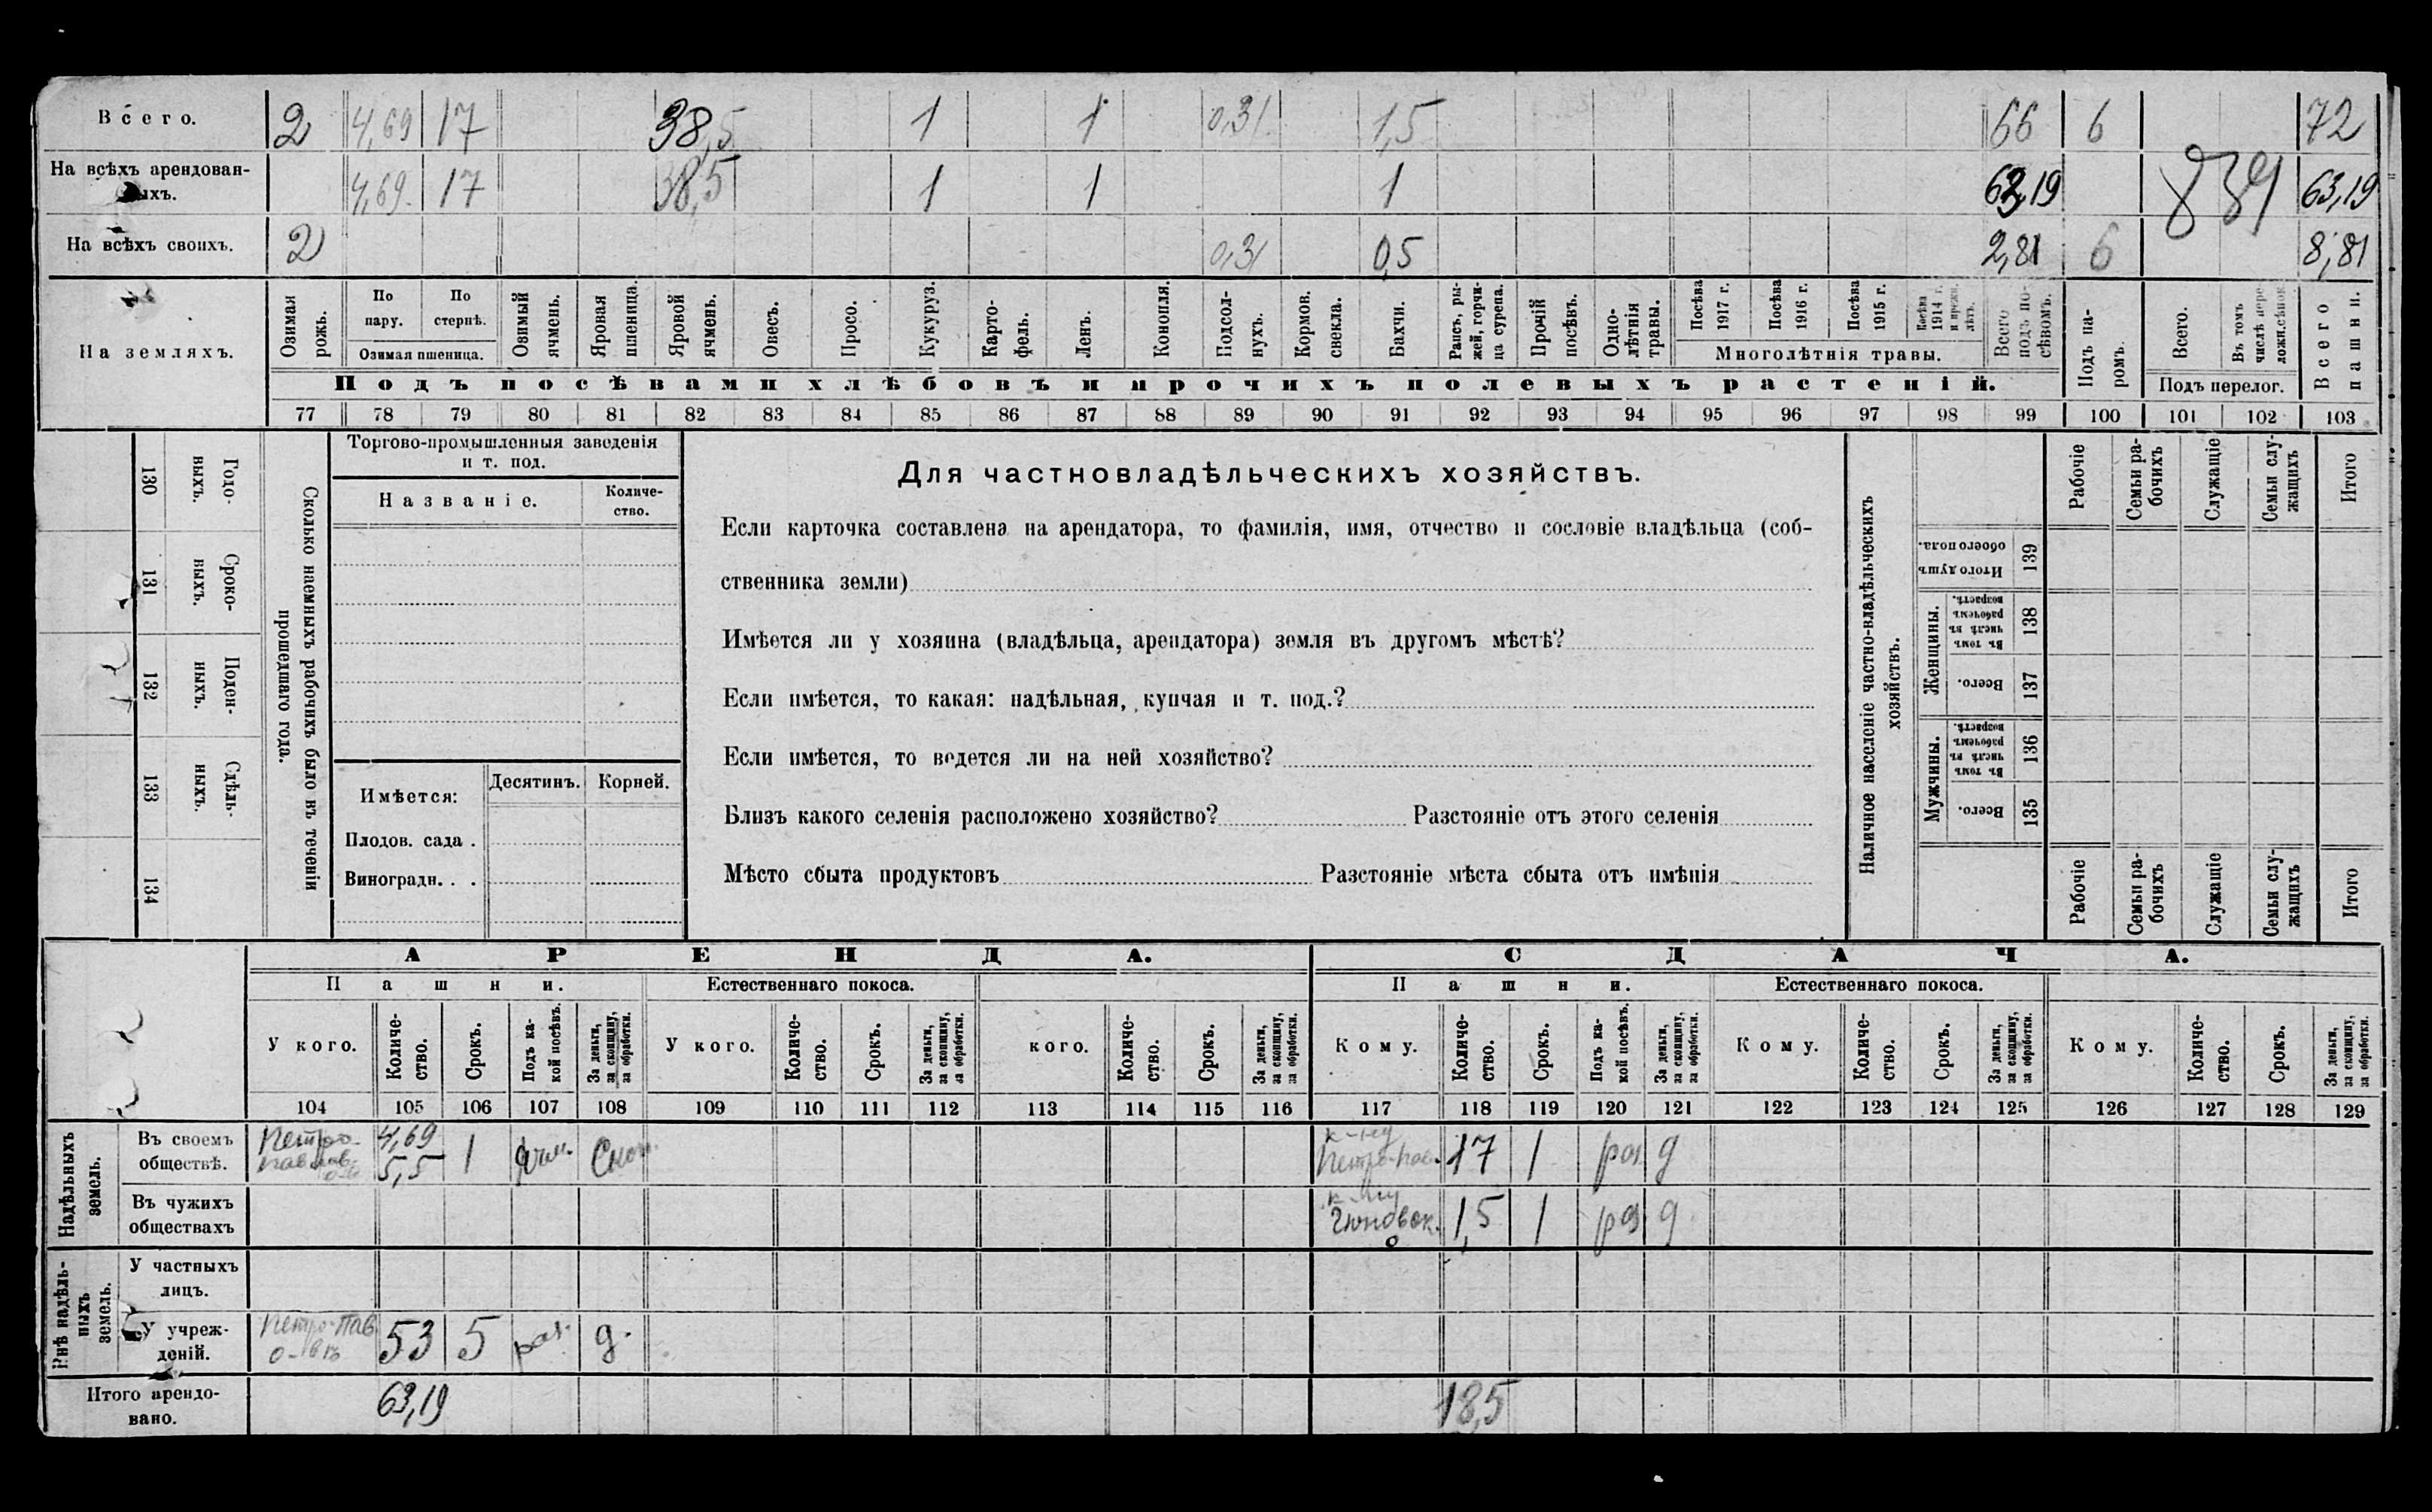 Всего. 2 4,69 17 38,5 1 1 0,31 1,5 66 6 72
На всѣхъ арендован-
ыхъ. 4,69. 17 38,5 1 1 1 63,19 839 63,19
На всѣхъ своихъ. 2 0,31 0,5 2,81 6 8,81
На земляхъ.
Озимая
рожь.
По
пару.
По
стернѣ.
Озимая пшеница.
Озимый
ячмень.
Яровая
пшеница.
Яровой
ячмень.
Овесъ.
Просо.
Кукуруз.
Карто-
фель.
Ленъ.
Конопля.
Подсол-
нухъ.
Кормов.
свекла.
Бахчи.
Рапсъ, ры-
жей, горчи-
ца сурепа.
Прочій
посѣвъ.
Одно-
лѣтнія
травы.
Посѣва
1917 г.
Посѣва
1916 г.
Посѣва
1915 г.
1914 г.
и прежн.
лѣтъ.
Многолѣтнія травы.
Всего
подъ по-
сѣвомъ.
Подъ па-
ромъ.
Всего.
Въ томъ
числѣ пере-
ложн.сѣнок
Подъ перелог.
Всего
пашни.
Подъ посѣвами хлѣбовъ и прочихъ полевыхъ растеній.
77 78 79 80 81 82 83 84 85 86 87 88 89 90 91 92 93 94 95 96 97 98 99 100 101 102 103
130 Годо-
ныхъ.
131 Сроко-
ныхъ.
132 Поден-
ныхъ.
133 Сдѣль-
ныхъ.
134
Сколько наемныхъ рабочихъ было въ теченіи
прошедшаго года.
Торгово-промышленныя заведенія
и т. под.
Названіе.
Количе-
ство.
Имѣется:
Десятинъ. Корней.
Плодов. сада .
Виноградн. . .
Для частновладѣльческихъ хозяйствъ.
Если карточка составлена на арендатора, то фамилія, имя, отчество и сословіе владѣльца (соб-
ственника земли)
Имѣется ли у хозяина (владѣльца, арендатора) земля въ другомъ мѣстѣ?
Если имѣется, то какая: надѣльная, купчая и т. под.?
Если имѣется, то ведется ли на ней хозяйство?
Близъ какого селенія расположено хозяйство? Разстояніе отъ этого селенія
Мѣсто сбыта продуктовъ Разстояніе мѣста сбыта отъ имѣнія
Наличное населеніе частно-владѣльческихъ
хозяйствъ.
Рабочіе
Семьи ра-
бочихъ
Служащіе
Семьи слу-
жащихъ
Итого
Итого душъ
обоего пола.
139
Женщины.
Въ томъ
числѣ въ
рабочемъ
возрастѣ.
138
Всего.
137
Мужчины.
Въ томъ
числѣ въ
рабочемъ
возрастѣ.
136
Всего.
135
Рабочіе
Семьи ра-
бочихъ
Служащіе
Семьи слу-
жащихъ
Итого
АРЕНДА. СДАЧА.
Пашни. Естественнаго покоса. Пашни. Естественнаго покоса.
У кого.
Количе-
ство.
Срокъ.
Подъ ка-
кой посѣвъ.
За деньги,
за скопщину,
за обработки.
У кого.
Количе-
ство.
Срокъ.
За деньги,
за скопщину,
за обработки.
кого.
Количе-
ство.
Срокъ.
За деньги,
за скопщину,
за обработки.
Кому.
Количе-
ство.
Срокъ.
Подъ ка-
кой посѣвъ.
За деньги,
за скопщину,
за обработки.
Кому.
Количе-
ство.
Срокъ.
За деньги,
за скопщину,
за обработки.
Кому.
Количе-
ство.
Срокъ.
За деньги,
за скопщину,
за обработки.
104 105 106 107 108 109 110 111 112 113 114 115 116 117 118 119 120 121 122 123 124 125 126 127 128 129
Надѣльныхъ
земель.
Въ своемъ
обществѣ.
Петро-
4,69
5,5 1 17 1 д
Въ чужихъ
обществахъ
1,5 1 д
Внѣ надѣль-
ныхъ
земель.
У частныхъ
лицъ.
У учреж-
деній.
Петро-Пав.
53 5 раз. д.
Итого арендо-
вано. 63,19 18,5